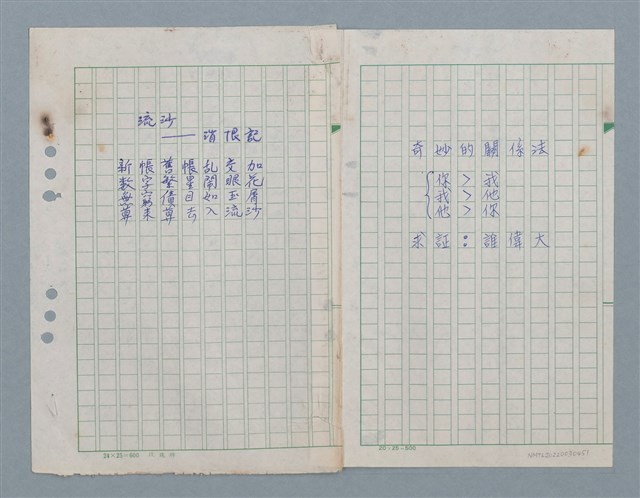 流沙
——消恨記
新帳舊帳乱交加
數字繁星閙眼花
每債目如玉屑
算來算去入流沙
24×25=600
奇妙的關係法
你 > 我
我 > 他
他 > 你
求証：誰偉大
20×25=500